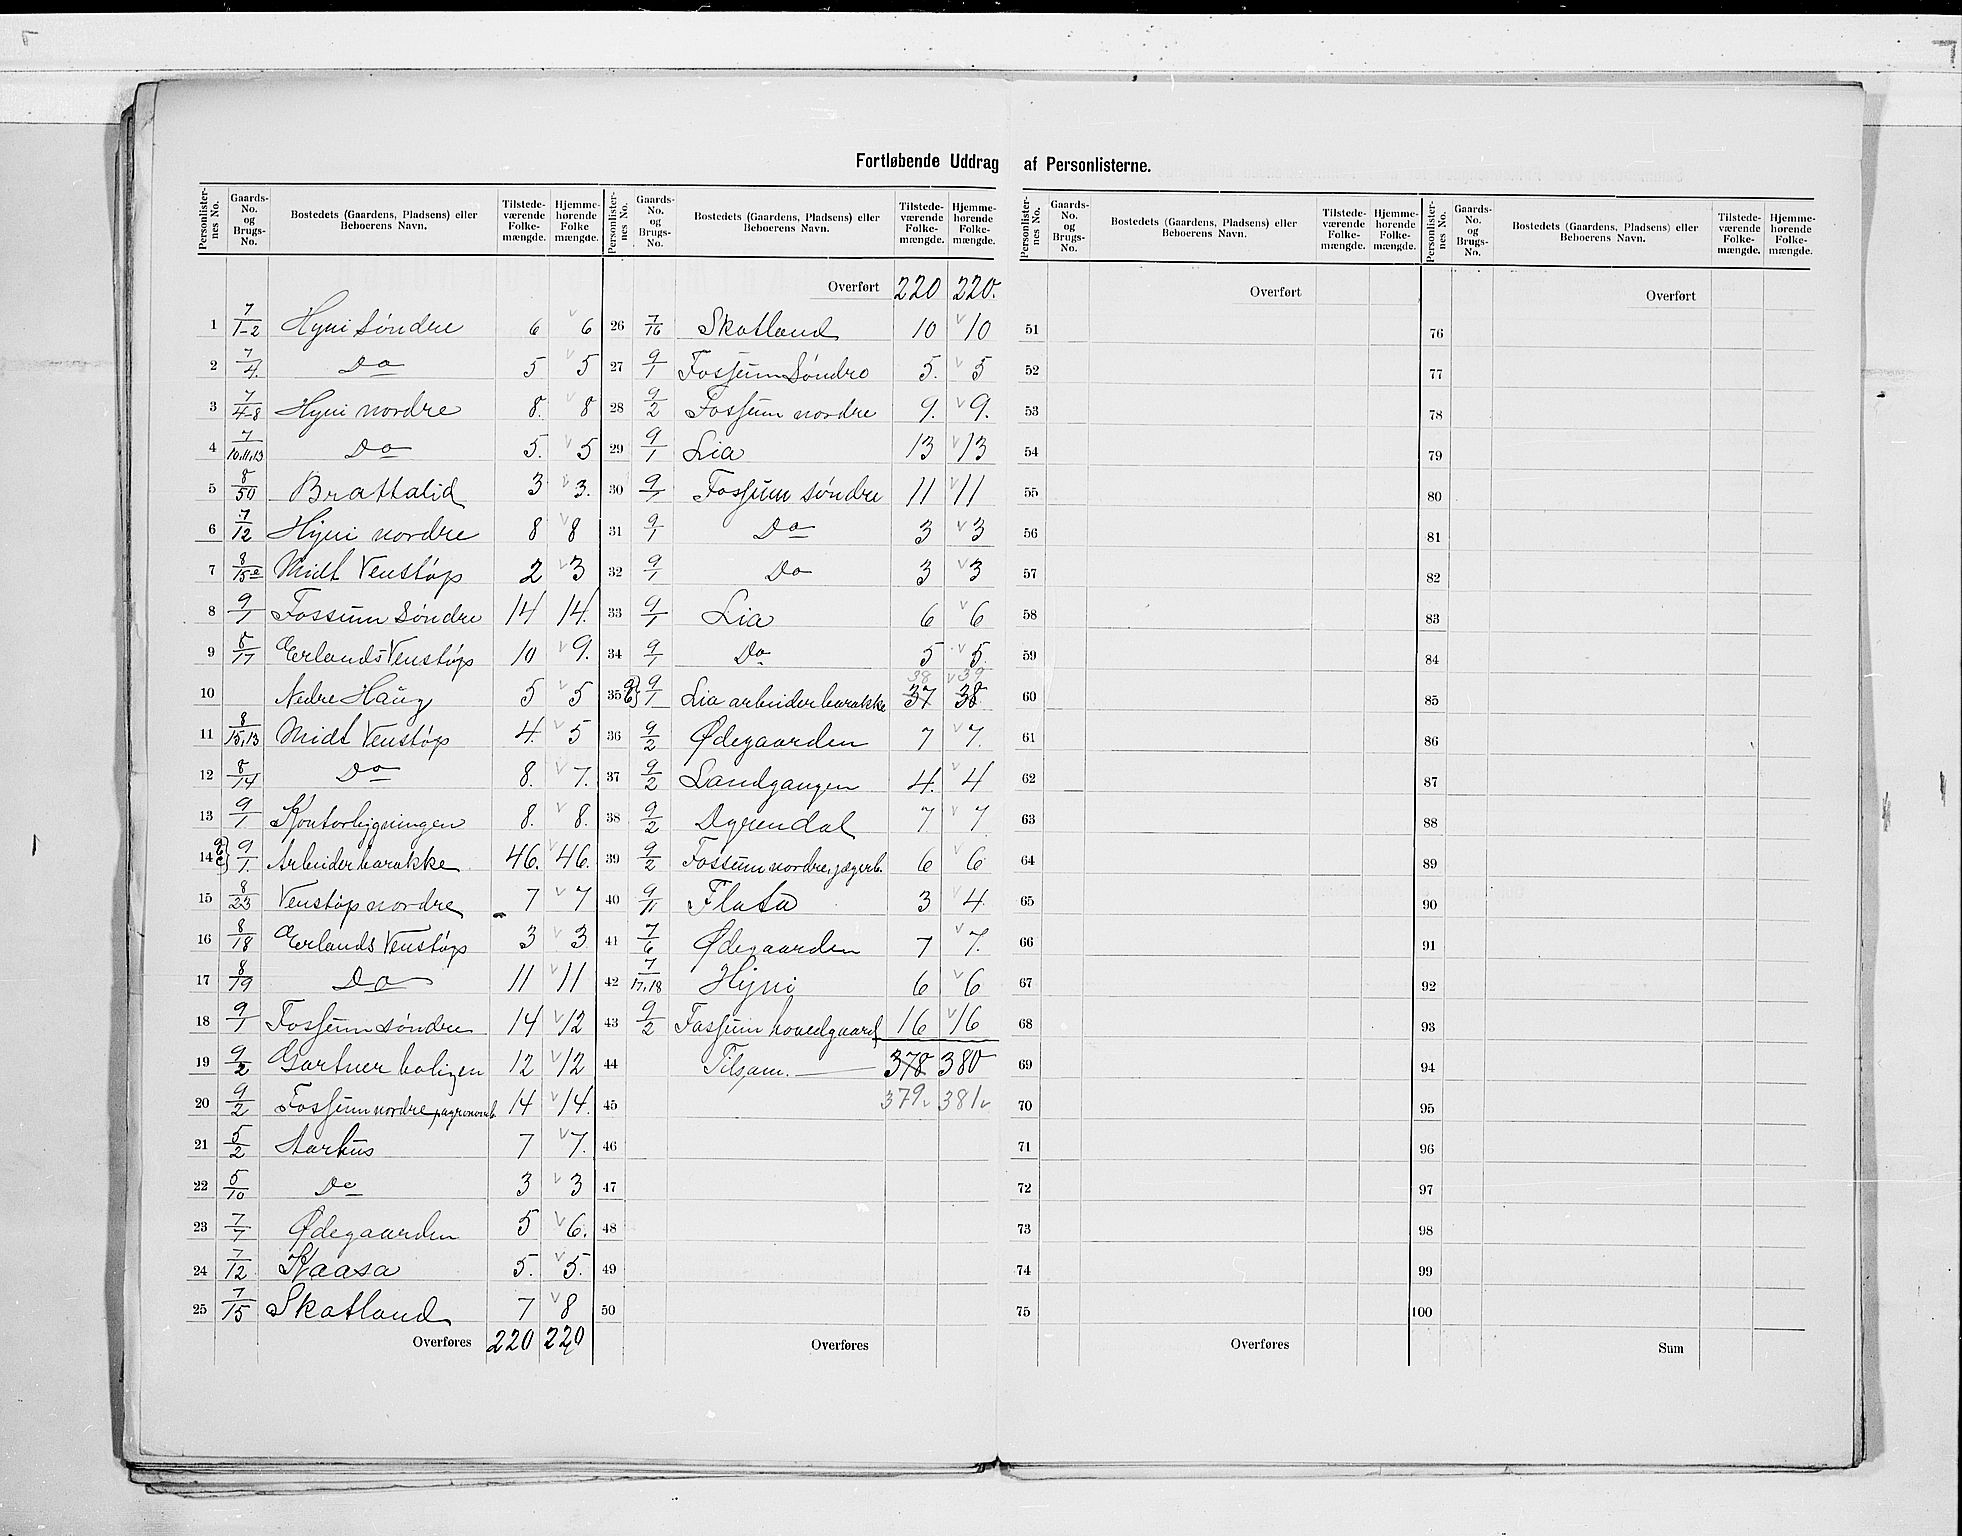 Fortløbende Uddrag af Personlisterne.
Personlister-nes No. Gaards-No. og Brugs-No. Bostedets (Gaardens, Pladsens) eller Beboerens Navn. Tilstede-værende Folke-mængde. Hjemme-hørende Folke mængde. Personlister-nes No. Gaards-No. og Brugs-No. Bostedets (Gaardens, Pladsens) eller Beboerens Navn. Tilstede-værende Folke-mængde. Hjemme-hørende Folke-mængde. Personlister-nes No. Gaards-No. og Brugs-No. Bostedets (Gaardens, Pladsens) eller Beboerens Navn. Tilstede-værende Folke-mængde. Hjemme-hørende Folke-mængde. Personlister-nes No. Gaards-No. og Brugs-No. Bostedets (Gaardens, Pladsens) eller Beboerens Navn. Tilstede-værende Folke-mængde. Hjemme-hørende Folke-mængde.
Overført 220 220. Overført Overført
1 7/1-2 Hyni søndre 6 6 26 7/16 Skotland 10 10 51 76
2 7/4 Do 5 5 27 9/1 Fossum Søndre 5. 5 52 77
3 7/4-8 Hyni nordre 8. 8 28 9/2 Fossum nordre 9. 9. 53 78
4 7/10,11,13 Do 5. 5 29 9/1 Lia 13 13 54 79
5 8/50 Brattalid 3 3. 30 9/1 Fossum søndre 11 11 55 80
6 7/12 Hyni nordre 8 8 31 9/1 Do 3 3 56 81
7 8/15 Midt Venstøp 2 3 32 9/1 Do 3 3 57 82
8 9/1 Fossum Søndre 14 14. 33 9/1 Lia 6 6 58 83
9 8/17 Erlands Venstøp 10 9. 34 9/1 Do 5 5. 59 84
38 39
10 Nedre Haug 5 5 35 9/1 Lia arbeiderbarakke 37 38 60 85
11 8/15,13 Midt Venstøp 4. 5 36 9/2 Ødegaarden 7 7. 61 86
12 8/14 Do 8. 7. 37 9/2 Landgangen 4. 4 62 87
13 9/1 Kontorbygningen 8. 8. 38 9/2 Dyrendal 7. 7. 63 88
14 9/1 Arbeiderbarakke 46. 46. 39 9/2 Fossum nordre, jægerb. 6 6 64 89
15 8/23 Venstøp nordre 7 7 40 9/11 Flata 3 4. 65 90
16 8/18 Erlands Venstøp 3 3 41 7/6 Ødegaarden 7 7. 66 91
17 8/19 Do 11 11 42 7/17,18 Hyni 6 6 67 92
18 9/1 Fossum søndre 14 12 43 9/2 Fossum hovedgaard 16 16 68 93
19 9/2 Gartnerboligen 12 12 44 Tilsam. 378 380 69 94
20 9/2 Fossum nordre, agronomb. 14 14. 45 379 381 70 95
21 5/2 Aarhus 7 7. 46 71 96
22 5/10 Do 3 3 47 72 97
23 7/7 Ødegaarden 5 6. 48 73 98
24 7/12 Kaasa 5. 5. 49 74 99
25 7/15 Skotland 7 8 50 75 100
Overføres 220 220 Overføres Overføres Sum